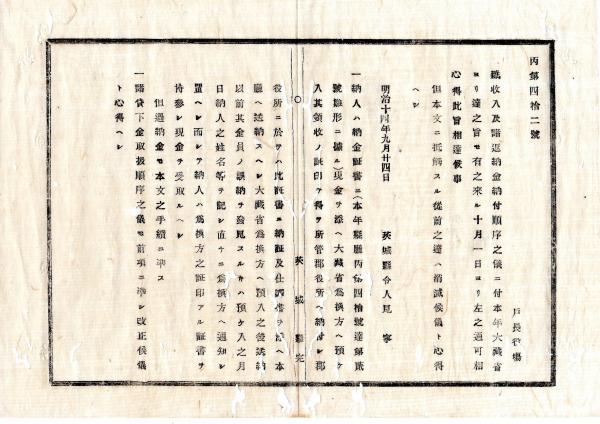 丙第四拾二號
戸長役場
諸收入及諸返納金納付順序之儀ニ付本年大藏省
ヨリ達之旨モ有之來ル十月一日ヨリ左之通可相
心得此旨相達候事
但本文ニ抵觸スル從前之達ハ消滅候儀ト心得
ヘシ
明治十四年九月廿四日
茨城縣令人見寧
一納人ハ納金証書ニ(本年縣廳丙第四拾號達第貳
號雛形ニ據ル)現金ヲ添ヘ大藏省爲換方ヘ預ケ
入其領收ノ証印ヲ得テ所管郡役所ヘ納付シ郡
茨城縣廳
役所ニ於テハ此証書ニ納証及仕譯書ヲ添ヘ本
廳ヘ送納スヘシ大藏省爲換方ヘ預入之後送納
以前其金員ノ誤納ヲ發見スルキハ預ケ入之月
日納人之姓名等ヲ記シ直チニ爲換方ヘ通知シ
置ヘシ而シテ納人ハ爲換方之証印アル証書ヲ
持參シ現金ヲ受取ルヘシ
但過納金モ本文之手續ニ準ス
一諸貸下金取扱順序之儀モ前項ニ準シ改正候儀
ト心得ヘシ